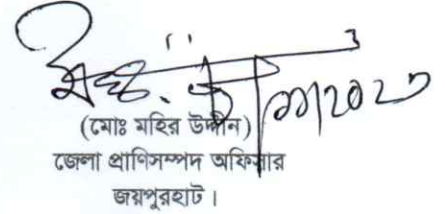 (মোঃ মহির উদ্দীন)
জেলা প্রাণিসম্পদ অফিসার
জয়পুরহাট।